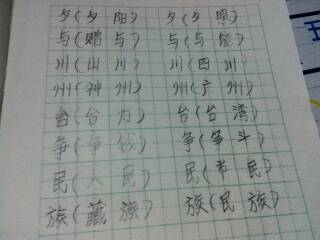 夕(夕阳) 夕(夕照)
与(赠与) 与(与能)
川(山川) 川(四川)
州(神州) 州(广州)
台(台力) 台(台湾)
争(争钱) 争(争斗)
民(人民) 民(市民)
族(藏族) 族(民族)